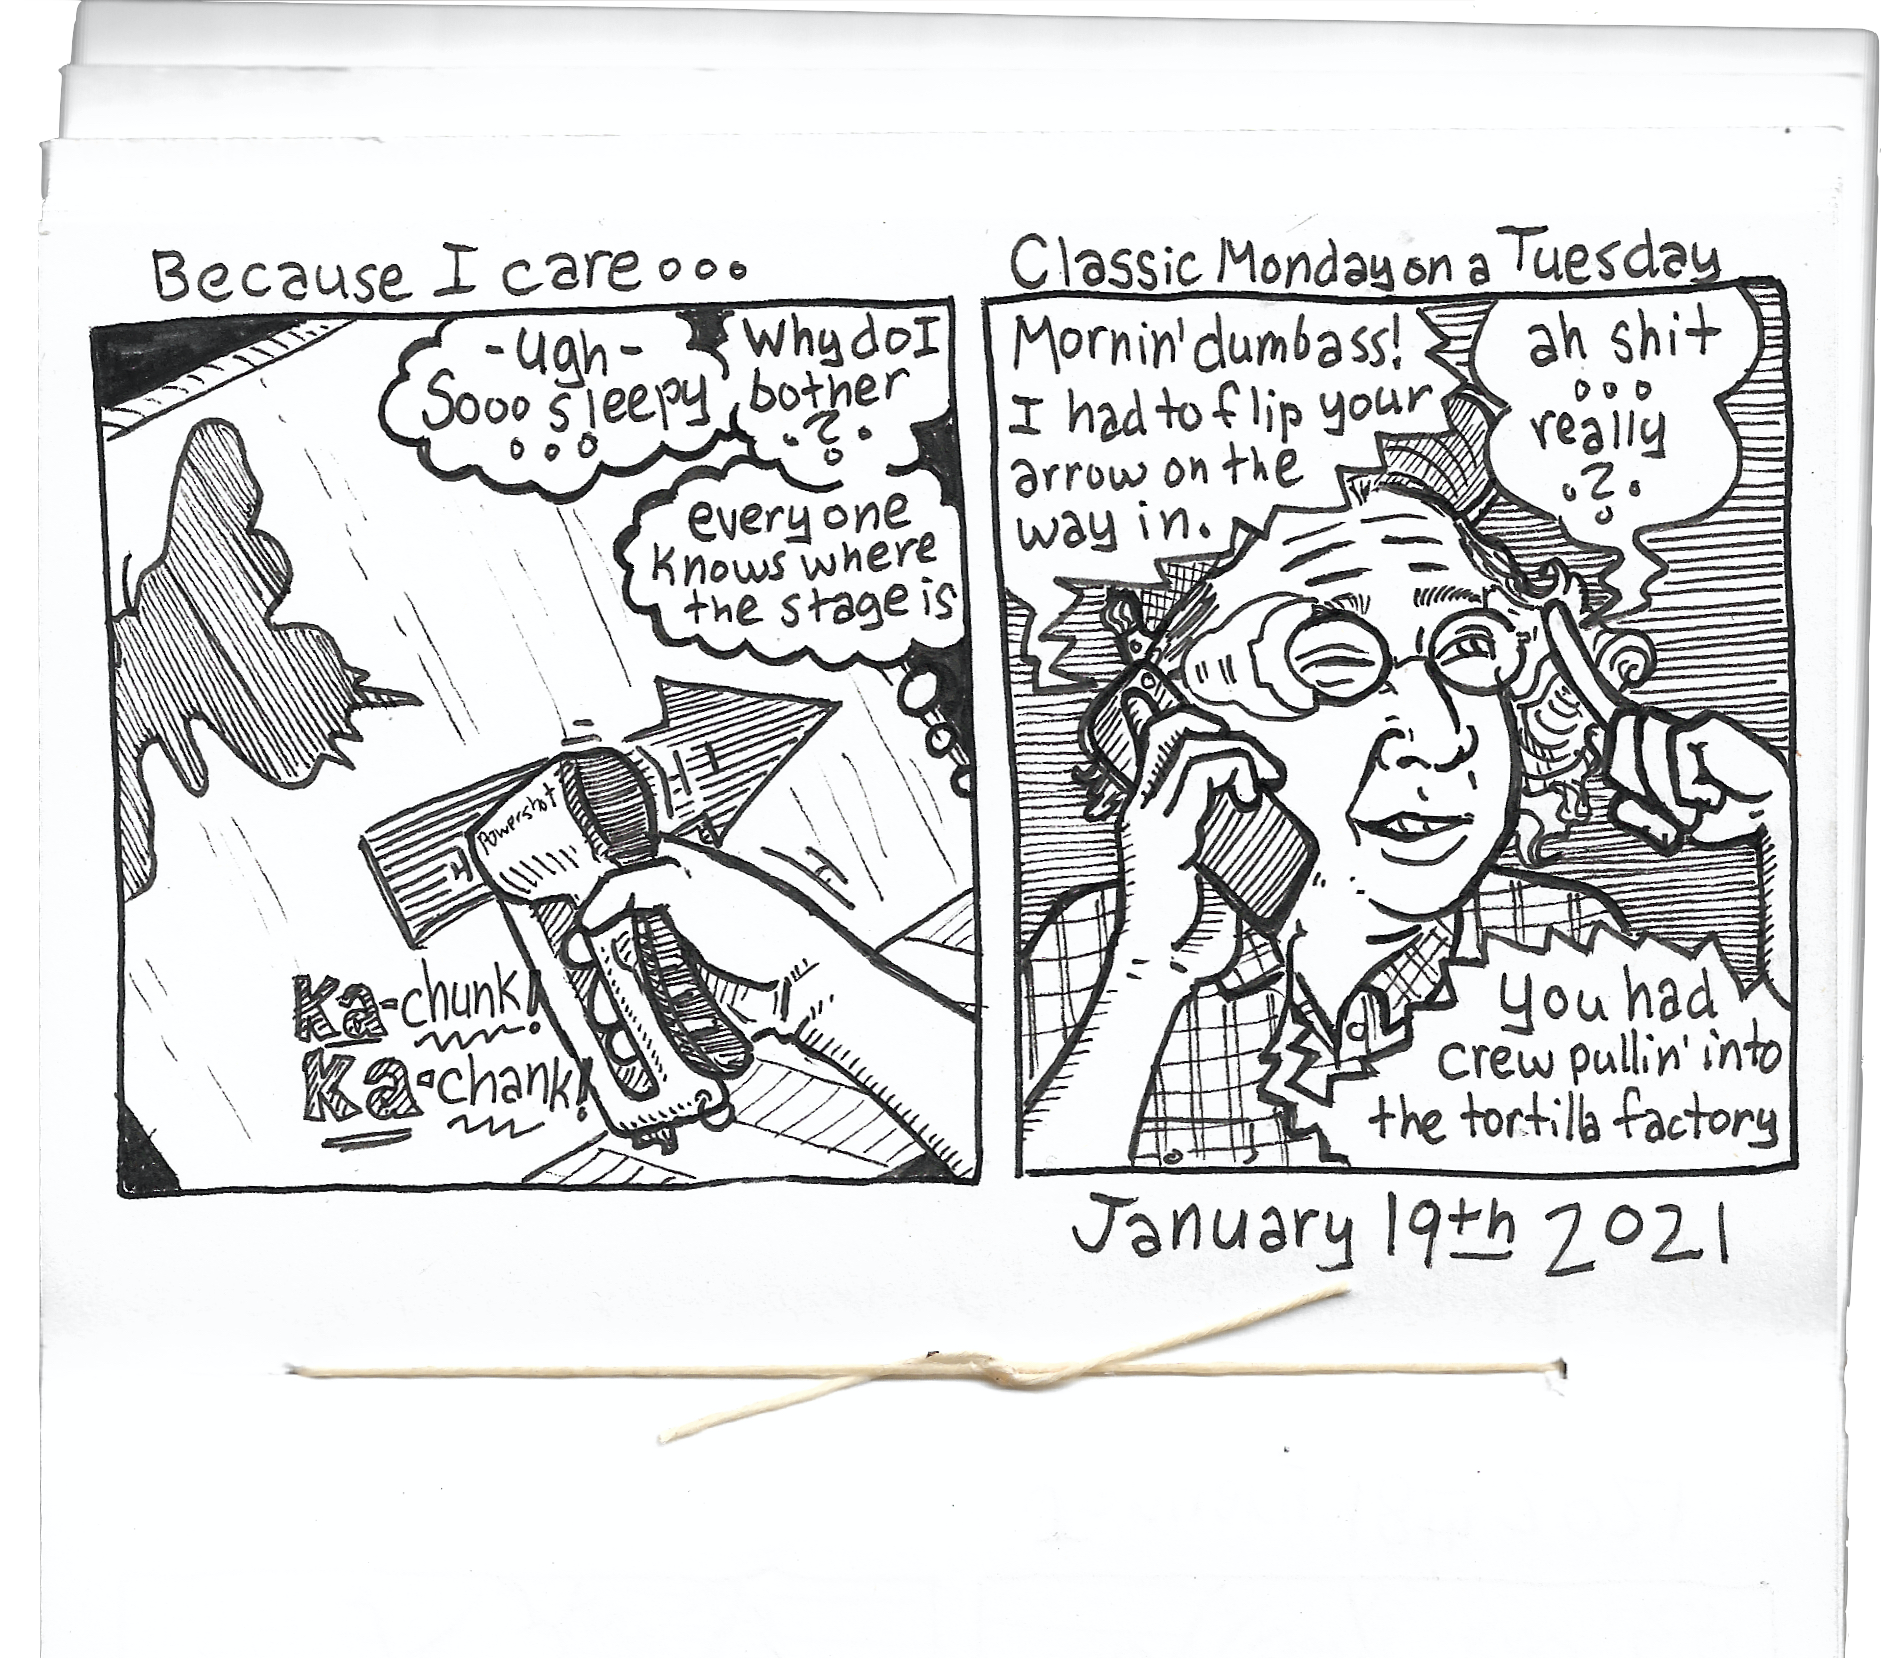 Because I care...
-ugh-
Sooo sleepy
...
Why do I
bother
?
everyone
knows where
the stage is
Powershot
Ka-chunk!
Ka-chank!
Classic Monday on a Tuesday
Mornin' dumbass!
I had to flip your
arrow on the
way in.
ah shit
...
really
?
you had
crew pullin' into
the tortilla factory
January 19th 2021